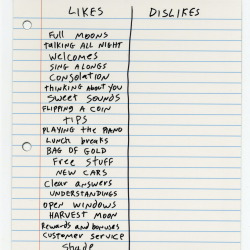 LIKES
DISLIKES
Full Moons
talking all night
Welcomes
sing alongs
Consolation
thinking about you
sweet sounds
flipping a coin
tips
playing the piano
Lunch breaks
Bag of gold
Free stuff
new cars
Clear answers
understandings
open windows
Harvest moon
Rewards and bonuses
customer service
shade